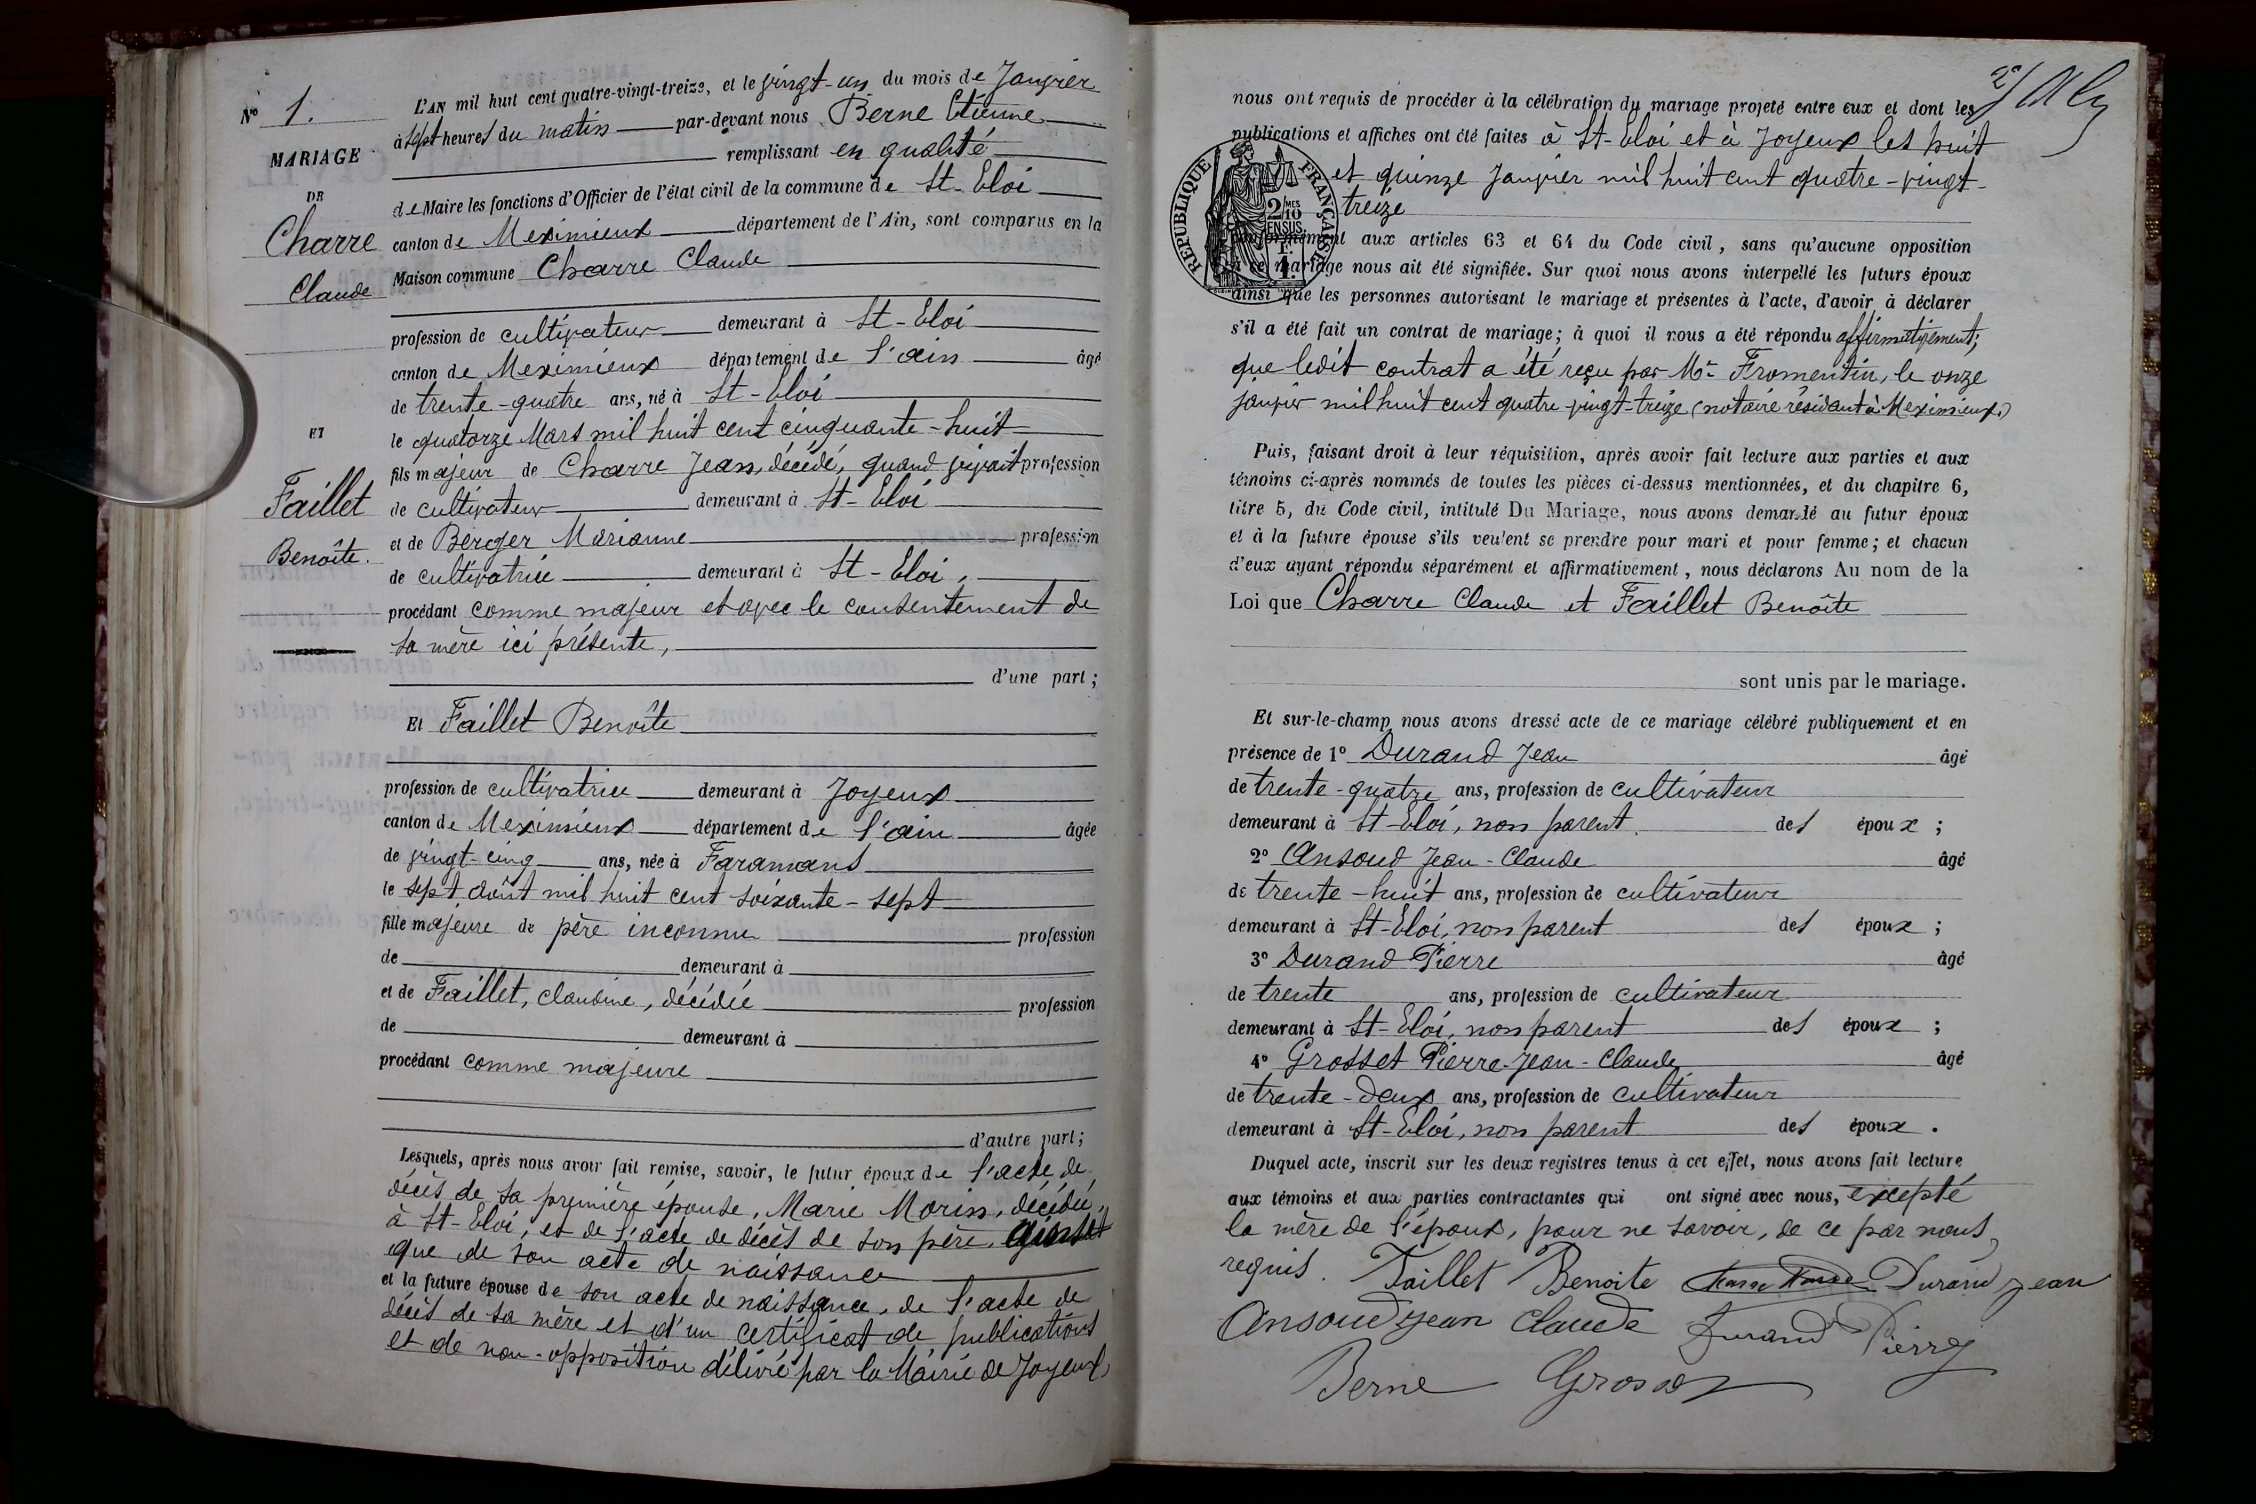 Nº 1.
MARIAGE
DE
Charre
Claude
ET
Faillet
Benoîte.
L'AN mil huit cent quatre-vingt-treize, et le vingt-un du mois de Janvier
à sept heures du matin par-devant nous Berne Etienne
remplissant en qualité
de Maire les fonctions d'Officier de l'état civil de la commune de St-Eloi
canton de Meximieux département de l'Ain, sont comparus en la
Maison commune Charre Claude
profession de cultivateur demeurant à St-Eloi
canton de Meximieux département de l'ain âgé
de trente-quatre ans, né à St-Eloi
le quatorze Mars mil huit cent cinquante-huit
fils majeur de Charre Jean, décédé, quand vivait profession
de cultivateur demeurant à St-Eloi
et de Berger Marianne profession
de cultivatrice demeurant à St-Eloi,
procédant comme majeur et avec le consentement de
sa mère ici présente,
d'une part;
Et Faillet Benoîte
profession de cultivatrice demeurant à Joyeux
canton de Meximieux département de l'ain âgée
de vingt-cinq ans, née à Faramans
le sept août mil huit cent soixante-sept
fille majeure de père inconnu profession
de demeurant à
et de Faillet, claudine, décédée profession
de demeurant à
procédant comme majeure
d'autre part;
Lesquels, après nous avoir fait remise, savoir, le futur époux de l'acte de
décès de sa première épouse, Marie Morin, décédée,
à St-Eloi, et de l'acte de décès de son père,
que de son acte de naissance
et la future épouse de son acte de naissance, de l'acte de
décès de sa mère et d'un certificat de publications
et de non-opposition délivré par la Mairie de Joyeux
nous ont requis de procéder à la célébration du mariage projeté entre eux et dont les
publications et affiches ont été faites à St-Eloi et à Joyeux les huit
et quinze Janvier mil huit cent quatre-vingt-
treize
RÉPUBLIQUE FRANÇAISE
2 MES
10
EN SUS
conformément aux articles 63 et 64 du Code civil, sans qu'aucune opposition
à ce mariage nous ait été signifiée. Sur quoi nous avons interpellé les futurs époux
ainsi que les personnes autorisant le mariage et présentes à l'acte, d'avoir à déclarer
s'il a été fait un contrat de mariage; à quoi il nous a été répondu affirmativement;
que ledit contrat a été reçu par Me Fromentin, le onze
janvier mil huit cent quatre-vingt-treize (notaire résidant à Meximieux.)
Puis, faisant droit à leur réquisition, après avoir fait lecture aux parties et aux
témoins ci-après nommés de toutes les pièces ci-dessus mentionnées, et du chapitre 6,
titre 5, du Code civil, intitulé Du Mariage, nous avons demandé au futur époux
et à la future épouse s'ils veulent se prendre pour mari et pour femme; et chacun
d'eux ayant répondu séparément et affirmativement, nous déclarons Au nom de la
Loi que Charre Claude et Faillet Benoîte
sont unis par le mariage.
Et sur-le-champ nous avons dressé acte de ce mariage célébré publiquement et en
présence de 1º Durand Jean âgé
de trente-quatre ans, profession de cultivateur
demeurant à St-Eloi, non parent des époux;
2º Ansoud Jean-Claude âgé
de trente-huit ans, profession de cultivateur
demeurant à St-Eloi, non parent des époux;
3º Durand Pierre âgé
de trente ans, profession de cultivateur
demeurant à St-Eloi, non parent des époux;
4º Grosset Pierre-Jean-Claude âgé
de trente-deux ans, profession de cultivateur
demeurant à St-Eloi, non parent des époux.
Duquel acte, inscrit sur les deux registres tenus à cet effet, nous avons fait lecture
aux témoins et aux parties contractantes qui ont signé avec nous, excepté
la mère de l'époux, pour ne savoir, de ce par nous
requis. Faillet Benoite Durand jean
Ansoud jean Claude Durand Pierre
Berne Grosset